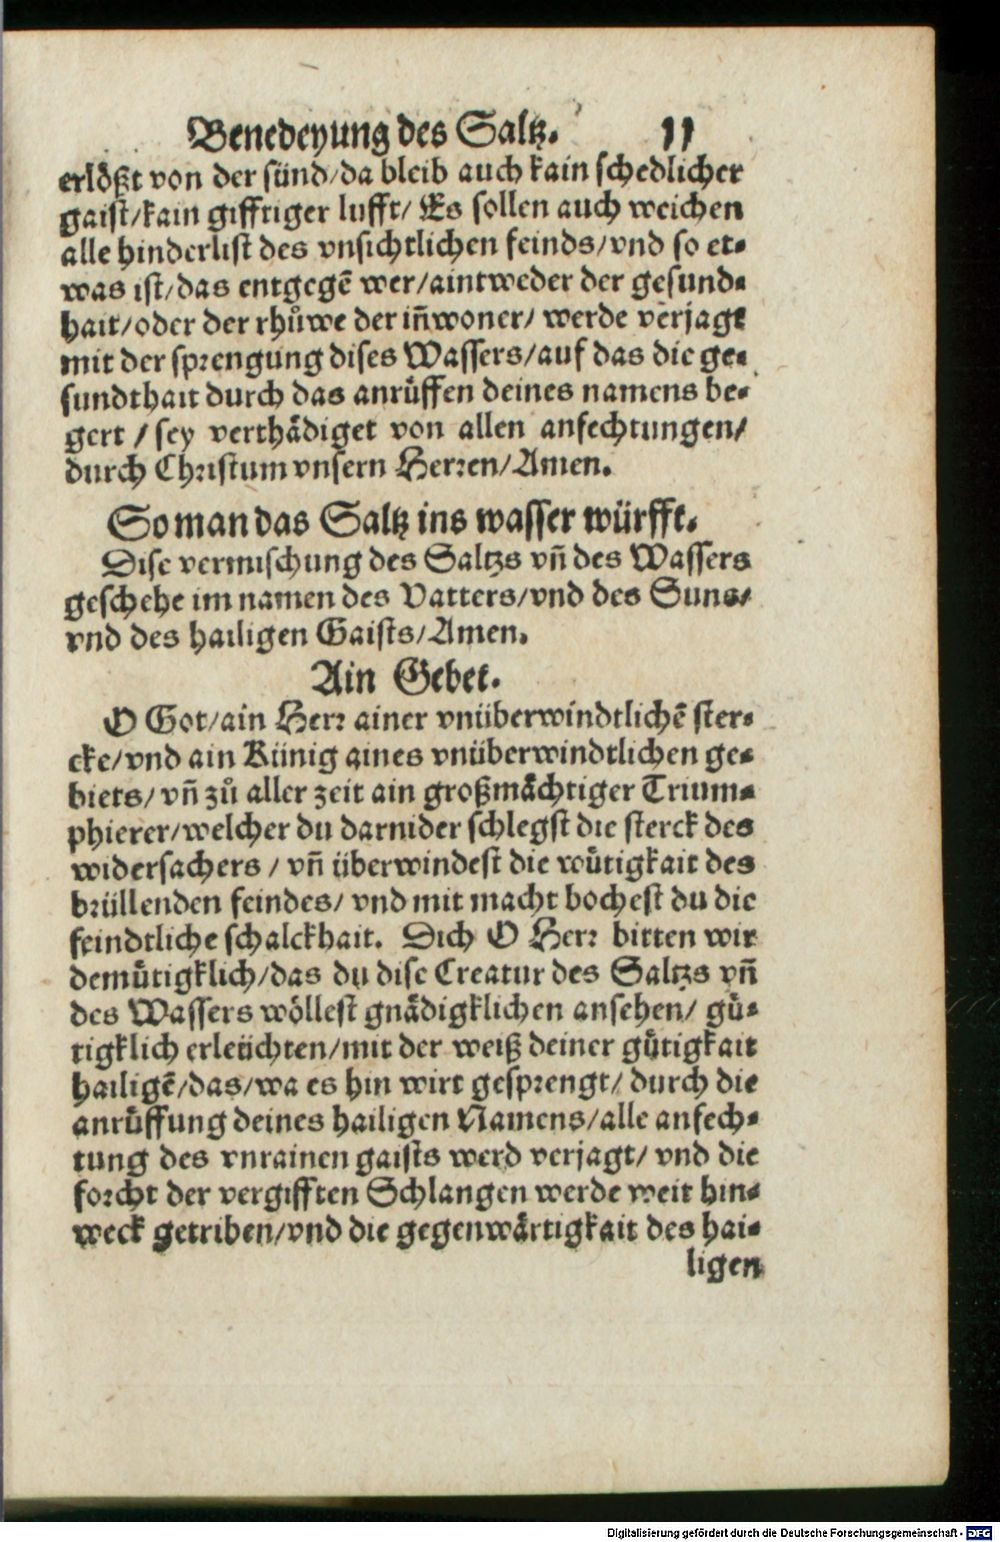 Benedeyung des Saltz. 11
erlößt von der sünd/da bleib auch kain schedlicher
gaist/kain gifftiger lufft/ Es sollen auch weichen
alle hinderlist des vnsichtlichen feinds/vnd so et-
was ist/das entgegē wer/aintweder der gesund-
hait/oder der rhůwe der iñwoner/ werde verjagt
mit der sprengung dises Wassers/auf das die ge-
sundthait durch das anrůffen deines namens be-
gert / sey verthädiget von allen anfechtungen/
durch Christum vnsern Herren/Amen.
So man das Saltz ins wasser würfft.
Dise vermischung des Saltzs vñ des Wassers
geschehe im namen des Vatters/vnd des Suns/
vnd des hailigen Gaists/Amen.
Ain Gebet.
O Got/ain Herr ainer vnüberwindtlichē ster-
cke/vnd ain Künig aines vnüberwindtlichen ge-
biets/vñ zů aller zeit ain großmächtiger Trium-
phierer/welcher du darnider schlegst die sterck des
widersachers / vñ überwindest die wůtigkait des
brüllenden feindes/ vnd mit macht bochest du die
feindtliche schalckhait. Dich O Herr bitten wir
demůtigklich/das du dise Creatur des Saltzs vñ
des Wassers wöllest gnädigklichen ansehen/ gů-
tigklich erleüchten/mit der weiß deiner gůtigkait
hailigē/das/wa es hin wirt gesprengt/ durch die
anrůffung deines hailigen Namens/alle anfech-
tung des vnrainen gaists werd verjagt/ vnd die
forcht der vergifften Schlangen werde weit hin-
weck getriben/vnd die gegenwärtigkait des hai-
ligen
Digitalisierung gefördert durch die Deutsche Forschungsgemeinschaft - DFG